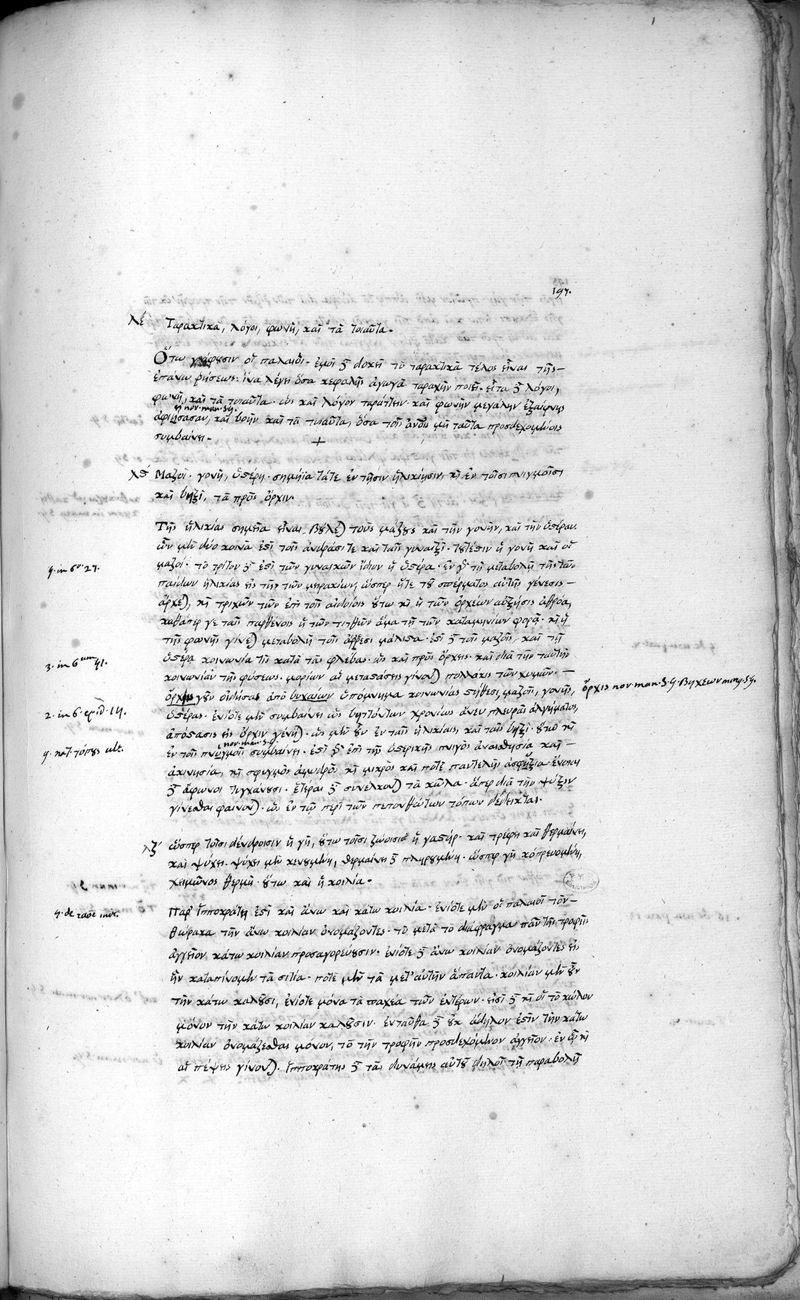 197.
λε Ταρακτικὰ, λόγοι, φωνὴ, καὶ τὰ τοιαῦτα.
Οὕτω γράφουσιν οἱ παλαιοί. ἐμοὶ δὲ δοκεῖ τὸ ταρακτικὰ τέλος εἶναι τῆς
ἐπάνω ῥήσεως. ἵνα λέγῃ ὅσα κεφαλῆς ἀγωγὰ ταραχὴν ποιεῖ. εἶτα δὲ λόγοι,
φωνὴ, καὶ τὰ τοιαῦτα. ὡς καὶ λόγον ταράττειν καὶ φωνὴν μεγάλην ἐξαίφνης
καὶ βοὴν καὶ τὰ τοιαῦτα, ὅσα τοῖς μὴ ταῦτα προσδεχομένοις
συμβαίνει.
λϛ Μαζοὶ. γονὴ, ὑστέρη. σημήϊα τάτε ἐν τῇσιν ἡλικίῃσιν, καὶ ἐν τοῖσι πνιγμοῖσι
καὶ βηξὶ, τὰ πρὸς ὄρχιν.
Τῆς ἡλικίας σημεῖα εἶναι βούλεται τοὺς μαζοὺς καὶ τὴν γονὴν, καὶ τὴν ὑστέραν.
ὧν μὲν δύο κοινὰ ἐστὶ τοῖς ἀνδράσι τε καὶ ταῖς γυναιξὶ. τουτέστιν ἡ γονὴ καὶ οἱ
4. in 6um 27. μαζοὶ. τὸ τρίτον δὲ ἐστὶ τῶν γυναικῶν ἴδιον ἡ ὑστέρα. ἐν γὰρ τῇ μεταβολῇ τῆς τῶν
παίδων ἡλικίας εἰς τὴν τῶν μειρακίων, ὥσπερ ἥτε τοῦ σπέρματος αὐτῆς γένεσις
ἄρχεται, καὶ τριχῶν τῶν ἐπὶ τοῖς αἰδοίοις οὕτω καὶ ἡ τῶν ὀρχέων αὔξησις ἀθρόα,
καθάπερ γε ταῖς παρθένοις ἡ τῶν τιτθῶν ἅμα τῇ τῶν καταμηνίων φορᾷ. καὶ ἡ
τῆς φωνῆς γίνεται μεταβολὴ τοῖς ἄρρεσι μάλιστα. ἐστὶ δὲ τοῖς μαζοῖς, καὶ τῇ
3. in 6um 41. ὑστέρᾳ κοινωνία τις κατὰ τὰς φλέβας. ὡς καὶ πρὸς ὄρχεις. καὶ διὰ τὴν ταύτην
κοινωνίαν τῆς φύσεως. μορίων αἱ μεταστάσεις γίνονται πολλάκις τῶν χυμῶν.
ὄρχις γοῦν οἰδήσας ἀπὸ βηχέων ὑπόμνημα κοινωνίας στήθεος, μαζοῖς, γονῆς, ὄρχις non man. 59 βηχέων
2. in 6. epid. 14. ὑστέρας. ἐνίοτε μὲν συμβαίνει ὡς βηττόντων χρονίως ἄνευ πλευρᾶς ἀλγήματος,
ἀπόστασις εἰς ὄρχιν γένηται. ὡς μὲν οὖν ἐν ταῖς ἡλικίαις, καὶ ταῖς βηξὶ. οὕτω καὶ
4. πεπ. τόπους ult. ἐν τοῖς πνιγμοῖς συμβαίνει. ἐστὶ γὰρ ἐπὶ τῆς ὑστερικῆς πνιγὸς ἀναισθησία καὶ
ἀκινησία, καὶ σφυγμὸς ἀμυδρὸς καὶ μικρὸς καὶ ποτὲ παντελὴς ἀσφυξία ἔνιοι
δὲ ἄφωνοι τυγχάνουσι. ἕτεραι δὲ συνέλκονται τὰ κῶλα. ἅπερ διὰ τὴν ψύξιν
γίνεσθαι φαίνονται. ὡς ἐν τῷ περὶ τῶν πεπονθότων τόπων δέδεικται.
λζ ὥσπερ τοῖσι δένδροισιν ἡ γῆ, οὕτω τοῖσι ζώοισιν ἡ γαστήρ. καὶ τρέφει καὶ θερμαίνει,
καὶ ψύχει. ψύχει μὲν κενουμένη, θερμαίνει δὲ πληρουμένη. ὥσπερ γῆ κοπρευομένη,
χειμῶνος θερμὴ οὕτω καὶ ἡ κοιλία.
Παρ' Ἱπποκράτει ἐστὶ καὶ ἄνω καὶ κάτω κοιλία. ἐνίοτε μὲν οἱ παλαιοὶ τὸν
θώρακα τὴν ἄνω κοιλίαν ὀνομάζοντες. τὸ μετὰ τὸ διάφραγμα πᾶν τῆς τροφῆς
ἀγγεῖον κάτω κοιλίαν προσαγορεύουσιν. ἐνίοτε δὲ ἄνω κοιλίαν ὀνομάζοντες εἰς
ἣν καταπίνομεν τὰ σιτία. ποτὲ μὲν τὰ μετ' αὐτὴν ἅπαντα. κοιλίαν μὲν οὖν
τὴν κάτω καλοῦσι, ἐνίοτε μόνα τὰ παχέα τῶν ἐντέρων. εἰσὶ δὲ καὶ οἳ τὸ κῶλον
μόνον τὴν κάτω κοιλίαν καλοῦσιν. ἐνταῦθα δὲ οὐκ ἄδηλον ἐστὶν τὴν κάτω
κοιλίαν ὀνομάζεσθαι μόνον, τὸ τὴν τροφὴν προσδεχόμενον ἀγγεῖον. ἐν ᾧ καὶ
αἱ πέψεις γίνονται. Ἱπποκράτης δὲ τὰς δυνάμεις αὐτοῦ δηλοῖ τῇ παραβολῇ